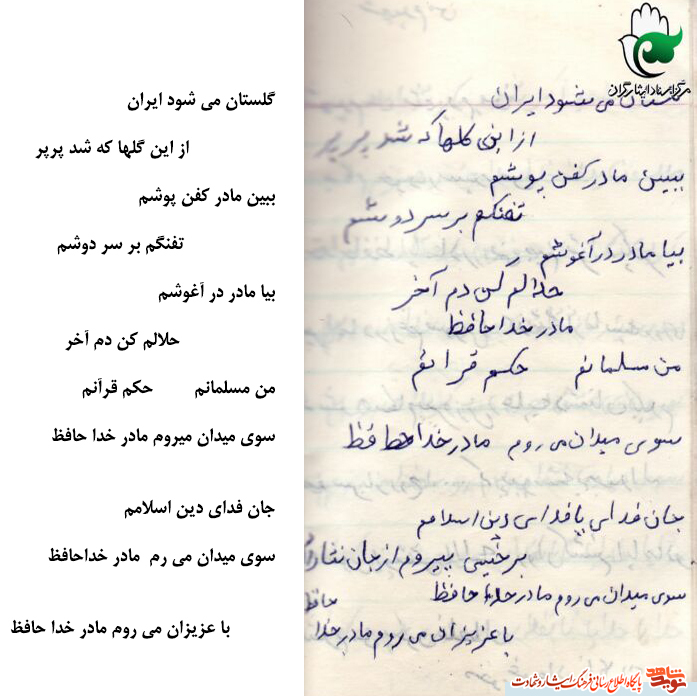 گلستان می شود ایران
از این گلها که شد پرپر
ببین مادر کفن پوشم
تفنگم بر سر دوشم
بیا مادر در آغوشم
حلالم کن دم آخر
من مسلمانم حکم قرآنم
سوی میدان میروم مادر خدا حافظ
جان فدای دین اسلامم
سوی میدان می رم مادر خداحافظ
با عزیزان می روم مادر خدا حافظ
مرکز اسناد ایثارگران
گلستان می شود ایران
از این گلها که شد پرپر
ببین مادر کفن پوشم
تفنگم بر سر دوشم
بیا مادر در آغوشم
حلالم کن دم آخر
مادر خدا حافظ
من مسلمانم حکم قرانم
سوی میدان می روم مادر خدا حافظ
جان فدای یا فدای دین اسلامم
بر خمینی پیروم از جان نثاران
سوی میدان می روم مادر خدا حافظ
با عزیزان می روم مادر خدا حافظ
نوید شاهد پایگاه اطلاع رسانی فرهنگ ایثار و شهادت